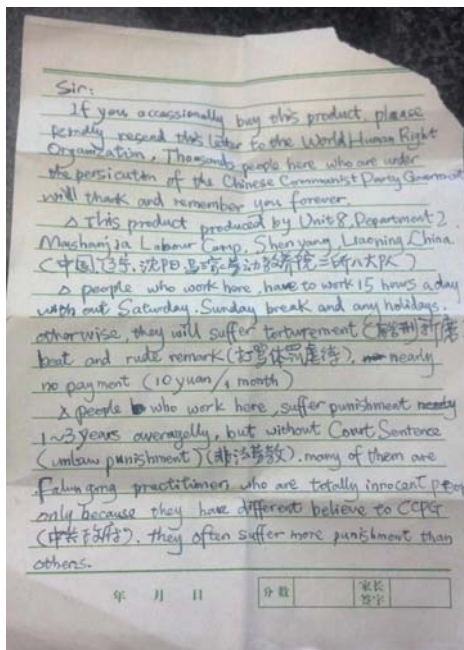 Sir:
If you occassionally buy this product, please
kindly resend this letter to the World Human Right
Organization, Thousands people here who are under
the persicution of the Chinese Communist Party Government
will thank and remember you forever.
△ This product produced by Unit 8, Department 2
Mashanjia Labour Camp, Shenyang, Liaoning, China.
(中国,辽宁,沈阳,马三家劳动教养院二所八大队)
△ people who work here, have to work 15 hours a day
with out Saturday, Sunday break and any holidays,
otherwise, they will suffer torturement (酷刑折磨)
beat and rude remark (打骂体罚虐待), nearly
no payment (10 yuan/1 month)
X people who work here, suffer punishment
1~3 years averagelly, but without Court Sentence
(unlaw punishment) (非法劳教). many of them are
Falungong practitioner, who are totally innocent people
only because they have different believe to CCPG
(中共政府), they often suffer more punishment than
others.
年 月 日 分数 家长签字